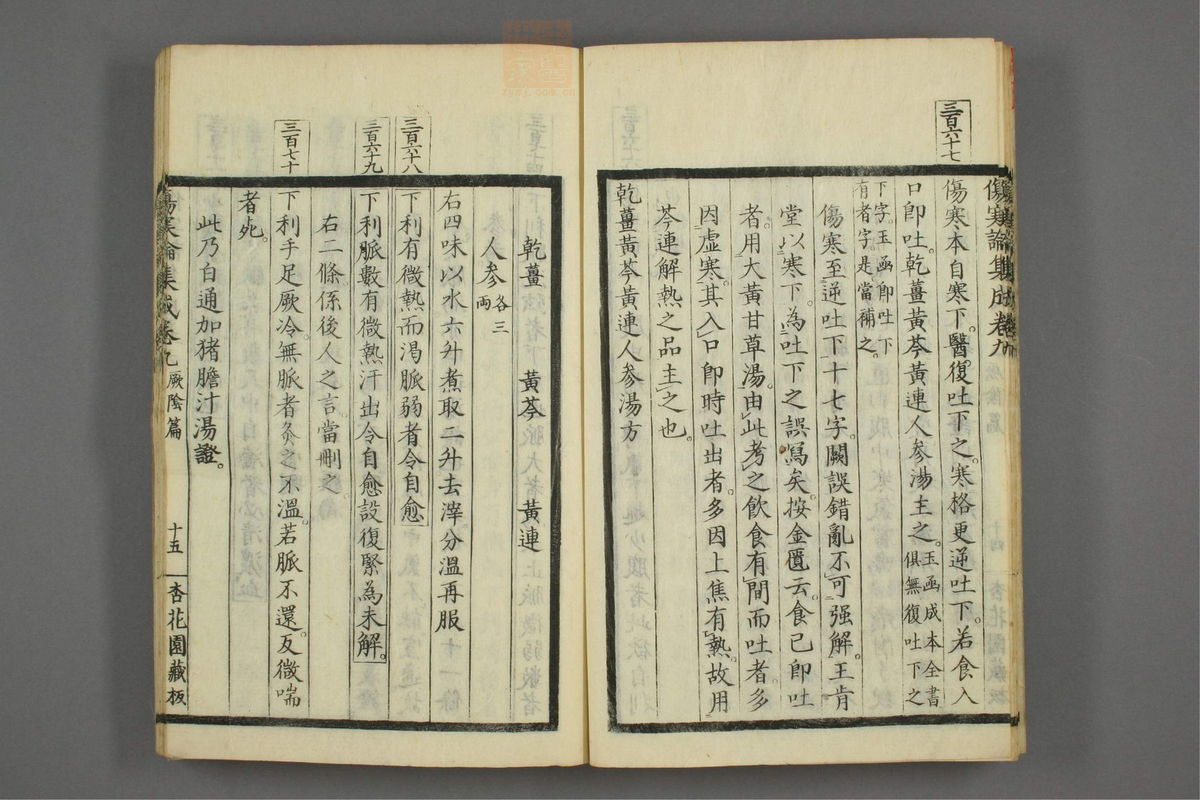 三百六十七
傷寒論集成卷九
傷寒本自寒下。醫復吐下之。寒格更逆吐下。若食入
口卽吐。乾薑黃芩黃連人參湯主之。玉函成本全書
俱無復吐下之
下字。玉函卽吐下
有者字。是當補之。
傷寒至逆吐下十七字。闕誤錯亂不可强解。王肯
堂以寒下。為吐下之誤寫矣。按金匱云。食已卽吐
者。用大黃甘草湯。由此考之飲食有間而吐者。多
因虛寒。其入口卽時吐出者。多因上焦有熱。故用
芩連解熱之品主之也。
乾薑黃芩黃連人參湯方
乾薑 黃芩 黃連
人參各三
兩
右四味以水六升煮取二升去滓分溫再服
三百六十八
下利有微熱而渴脈弱者令自愈
三百六十九
下利脈數有微熱汗出令自愈設復緊為未解。
右二條係後人之言。當刪之。
三百七十
下利手足厥冷。無脈者灸之不溫。若脈不還。反微喘
者死。
此乃白通加猪膽汁湯證。
傷寒論集成卷九 厥陰篇 十五 杏花園藏板